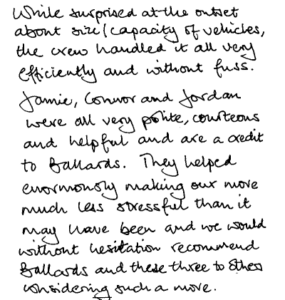 While surprised at the outset
about size/capacity of vehicles,
the crew handled it all very
efficiently and without fuss.
Jamie, Connor and Jordan
were all very polite, courteous
and helpful and are a credit
to Ballards. They helped
enormously making our move
much less stressful than it
may have been and we would
without hesitation recommend
Ballards and these three to others
considering such a move.